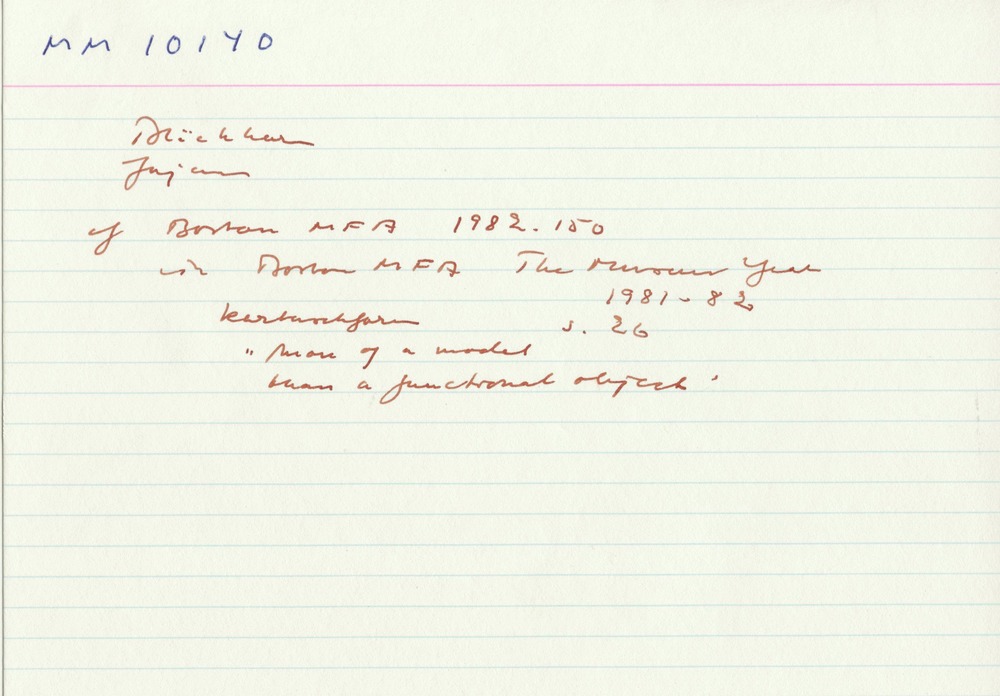 MM 10140
Bläckhorn
Fajans
cf Boston MFA 1982.150
in Boston MFA The Museum Year
1981-82
kartuschform s. 26
" More of a model
than a functional object "